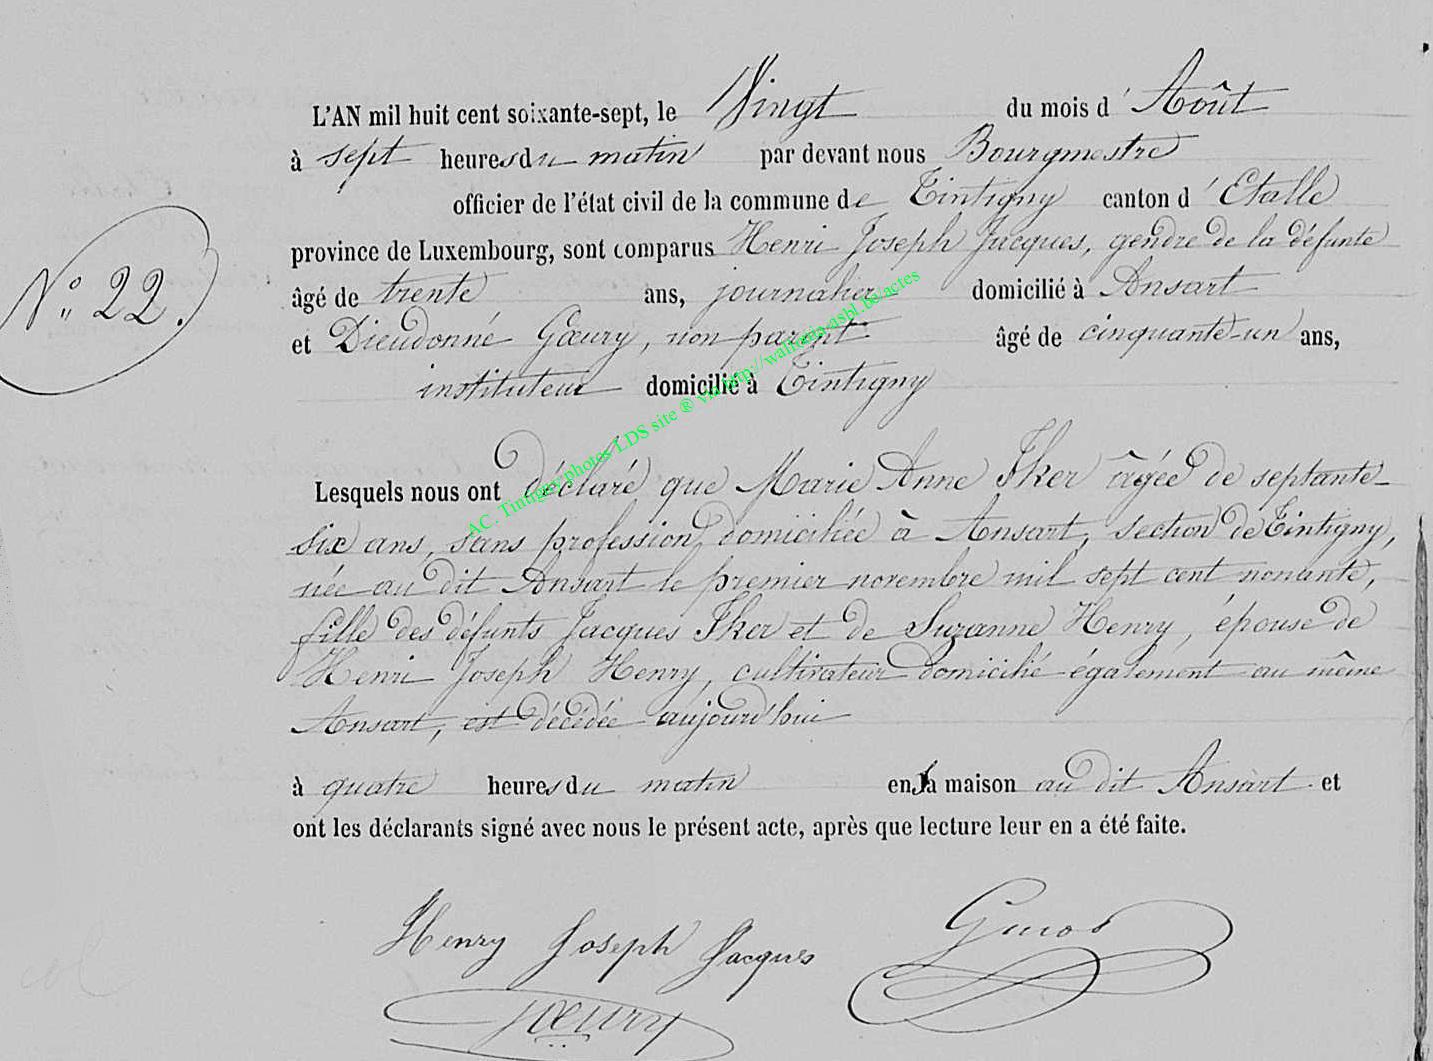 L'AN mil huit cent soixante-sept, le Vingt du mois d'Août
à sept heures du matin par devant nous Bourgmestre
officier de l'état civil de la commune de Tintigny canton d'Etalle
N° 22.
province de Luxembourg, sont comparus Henri Joseph Jacques, gendre de la défunte
âgé de trente ans, journalier domicilié à Ansart
et Dieudonné Gœury, non parent âgé de cinquante-un ans,
instituteur domicilié à Tintigny
AC. Tintigny photos LDS site ® via http://wallonia-asbl.be/actes
Lesquels nous ont déclaré que Marie Anne Iker âgée de septante-
six ans, sans profession, domiciliée à Ansart, section de Tintigny,
née au dit Ansart le premier novembre mil sept cent nonante,
fille des défunts Jacques Iker et de Suzanne Henry, épouse de
Henri Joseph Henry, cultivateur domicilié également au même
Ansart, est décédée aujourd'hui
à quatre heures du matin en la maison au dit Ansart et
ont les déclarants signé avec nous le présent acte, après que lecture leur en a été faite.
Henry Joseph Jacques
Gœury